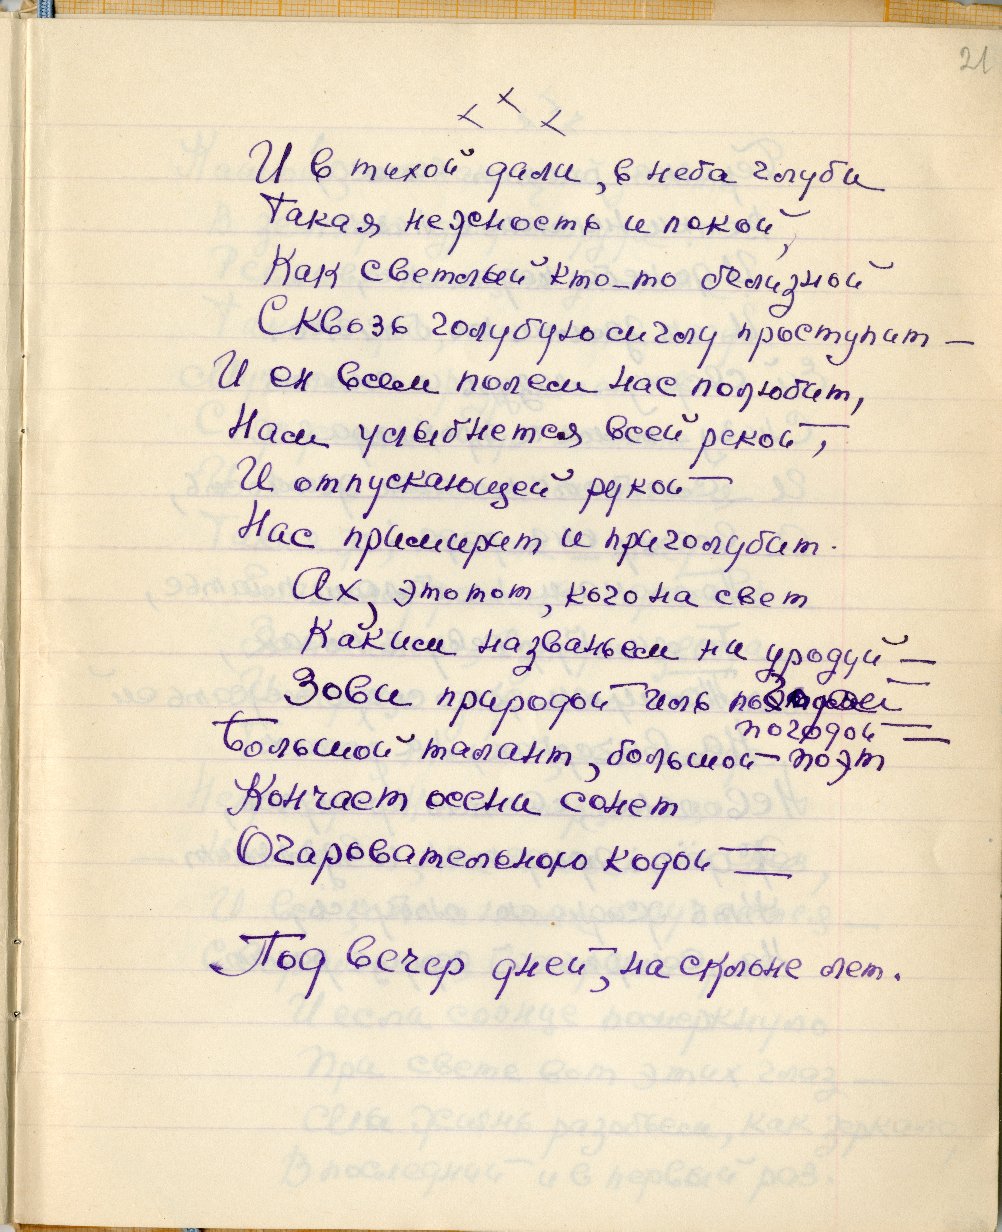 21
× × ×
И в тихой дали, в неба глуби
Такая нежность и покой,
Как светлый кто-то белизной
Сквозь голубую мглу проступит —
И он всем полем нас полюбит,
Нам улыбнется всей рекой,
И отпускающей рукой
Нас примирит и приголубит.
Ах, этот тот, кого на свет
Каким названьем ни уродуй —
Зови природой иль
погодой —
Большой талант, большой поэт
Кончает осени сонет
Очаровательною кодой —
Под вечер дней, на склоне лет.